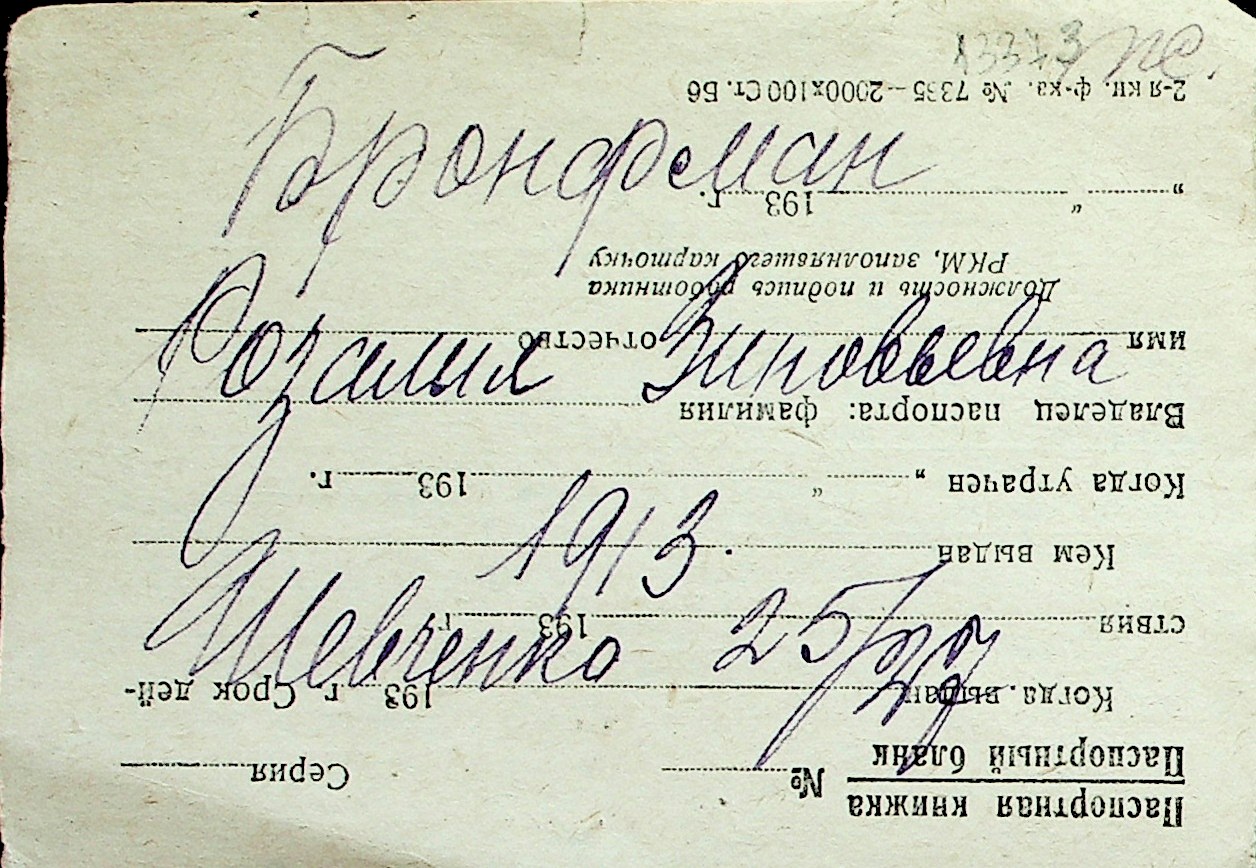 13373
Бронфман
Розалия Зиновьевна
1913.
Шевченко 25/
Паспортная книжка
Паспортный бланк
№ Серия
Когда выдан 193 г. Срок дей-
ствия 193 г.
Кем выдан
Когда утрачен „ “ 193 г.
Владелец паспорта: фамилия
имя отчество
Должность и подпись работника
РКМ, заполнявшего карточку
„ “ 193 г.
2-я кн. ф-ка. № 7335—2000х100 Ст. Б6